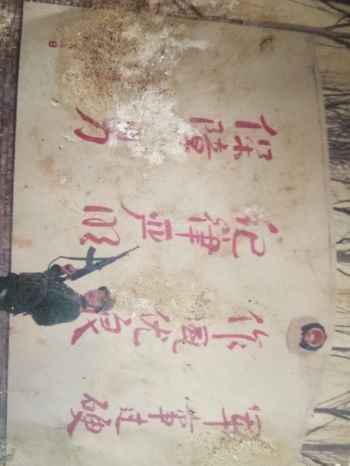 军事过硬
作风优良
纪律严明
保障力
8